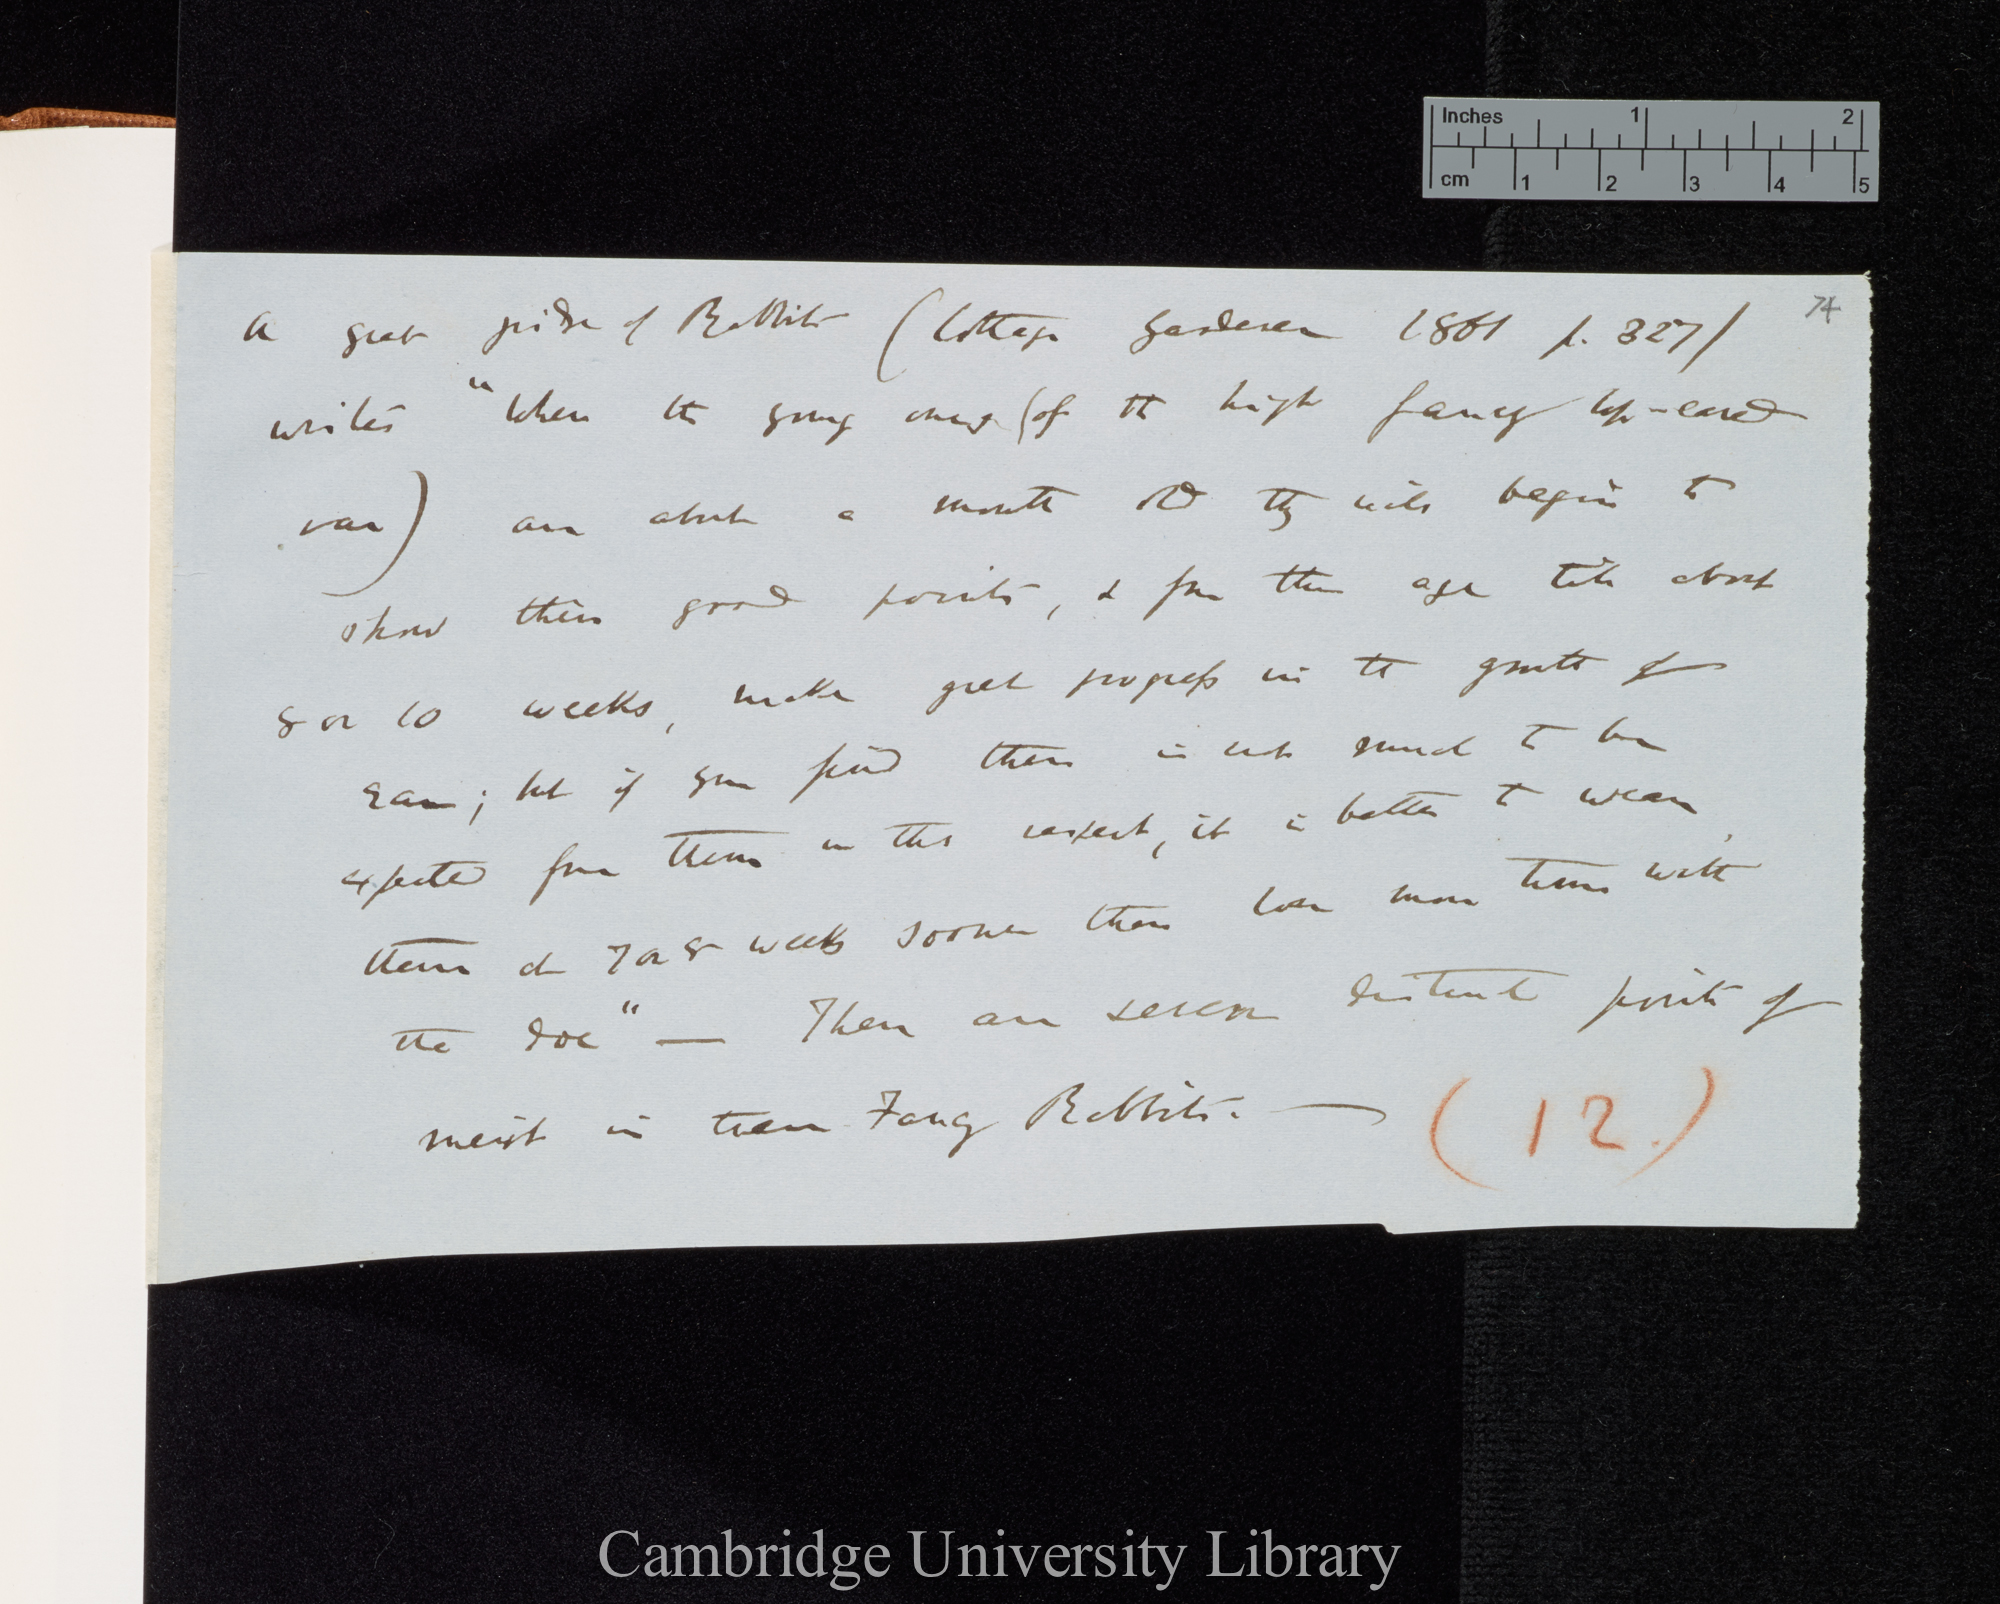 Inches 1 2
cm 1 2 3 4 5
74
A great judge of Rabbits (Cottage Gardener 1861 p. 327)
writes "When the young ones (of the high fancy lop-eared
var) are about a month old they will begin to
show their good points, & from then age till about
8 or 10 weeks, make great progress in the growth of
ear; but if you find there is not much to be
expected from them in this respect, it is better to wean
them at 7 or 8 weeks sooner than lose more time with
the doe" — There are seven distinct points of
merit in these Fancy Rabbits. —
(12.)
Cambridge University Library